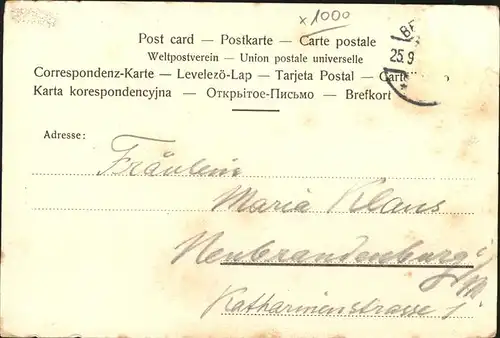 x 1000
Post card — Postkarte — Carte postale
Weltpostverein — Union postale universelle
Correspondenz-Karte — Levelező-Lap — Tarjeta Postal — Carte
Karta korespondencyjna — Открытое-Письмо — Brefkort
25.9
Adresse:
Fräulein
Maria Klaus
Neubrandenburg i/M.
Katharinenstrasse